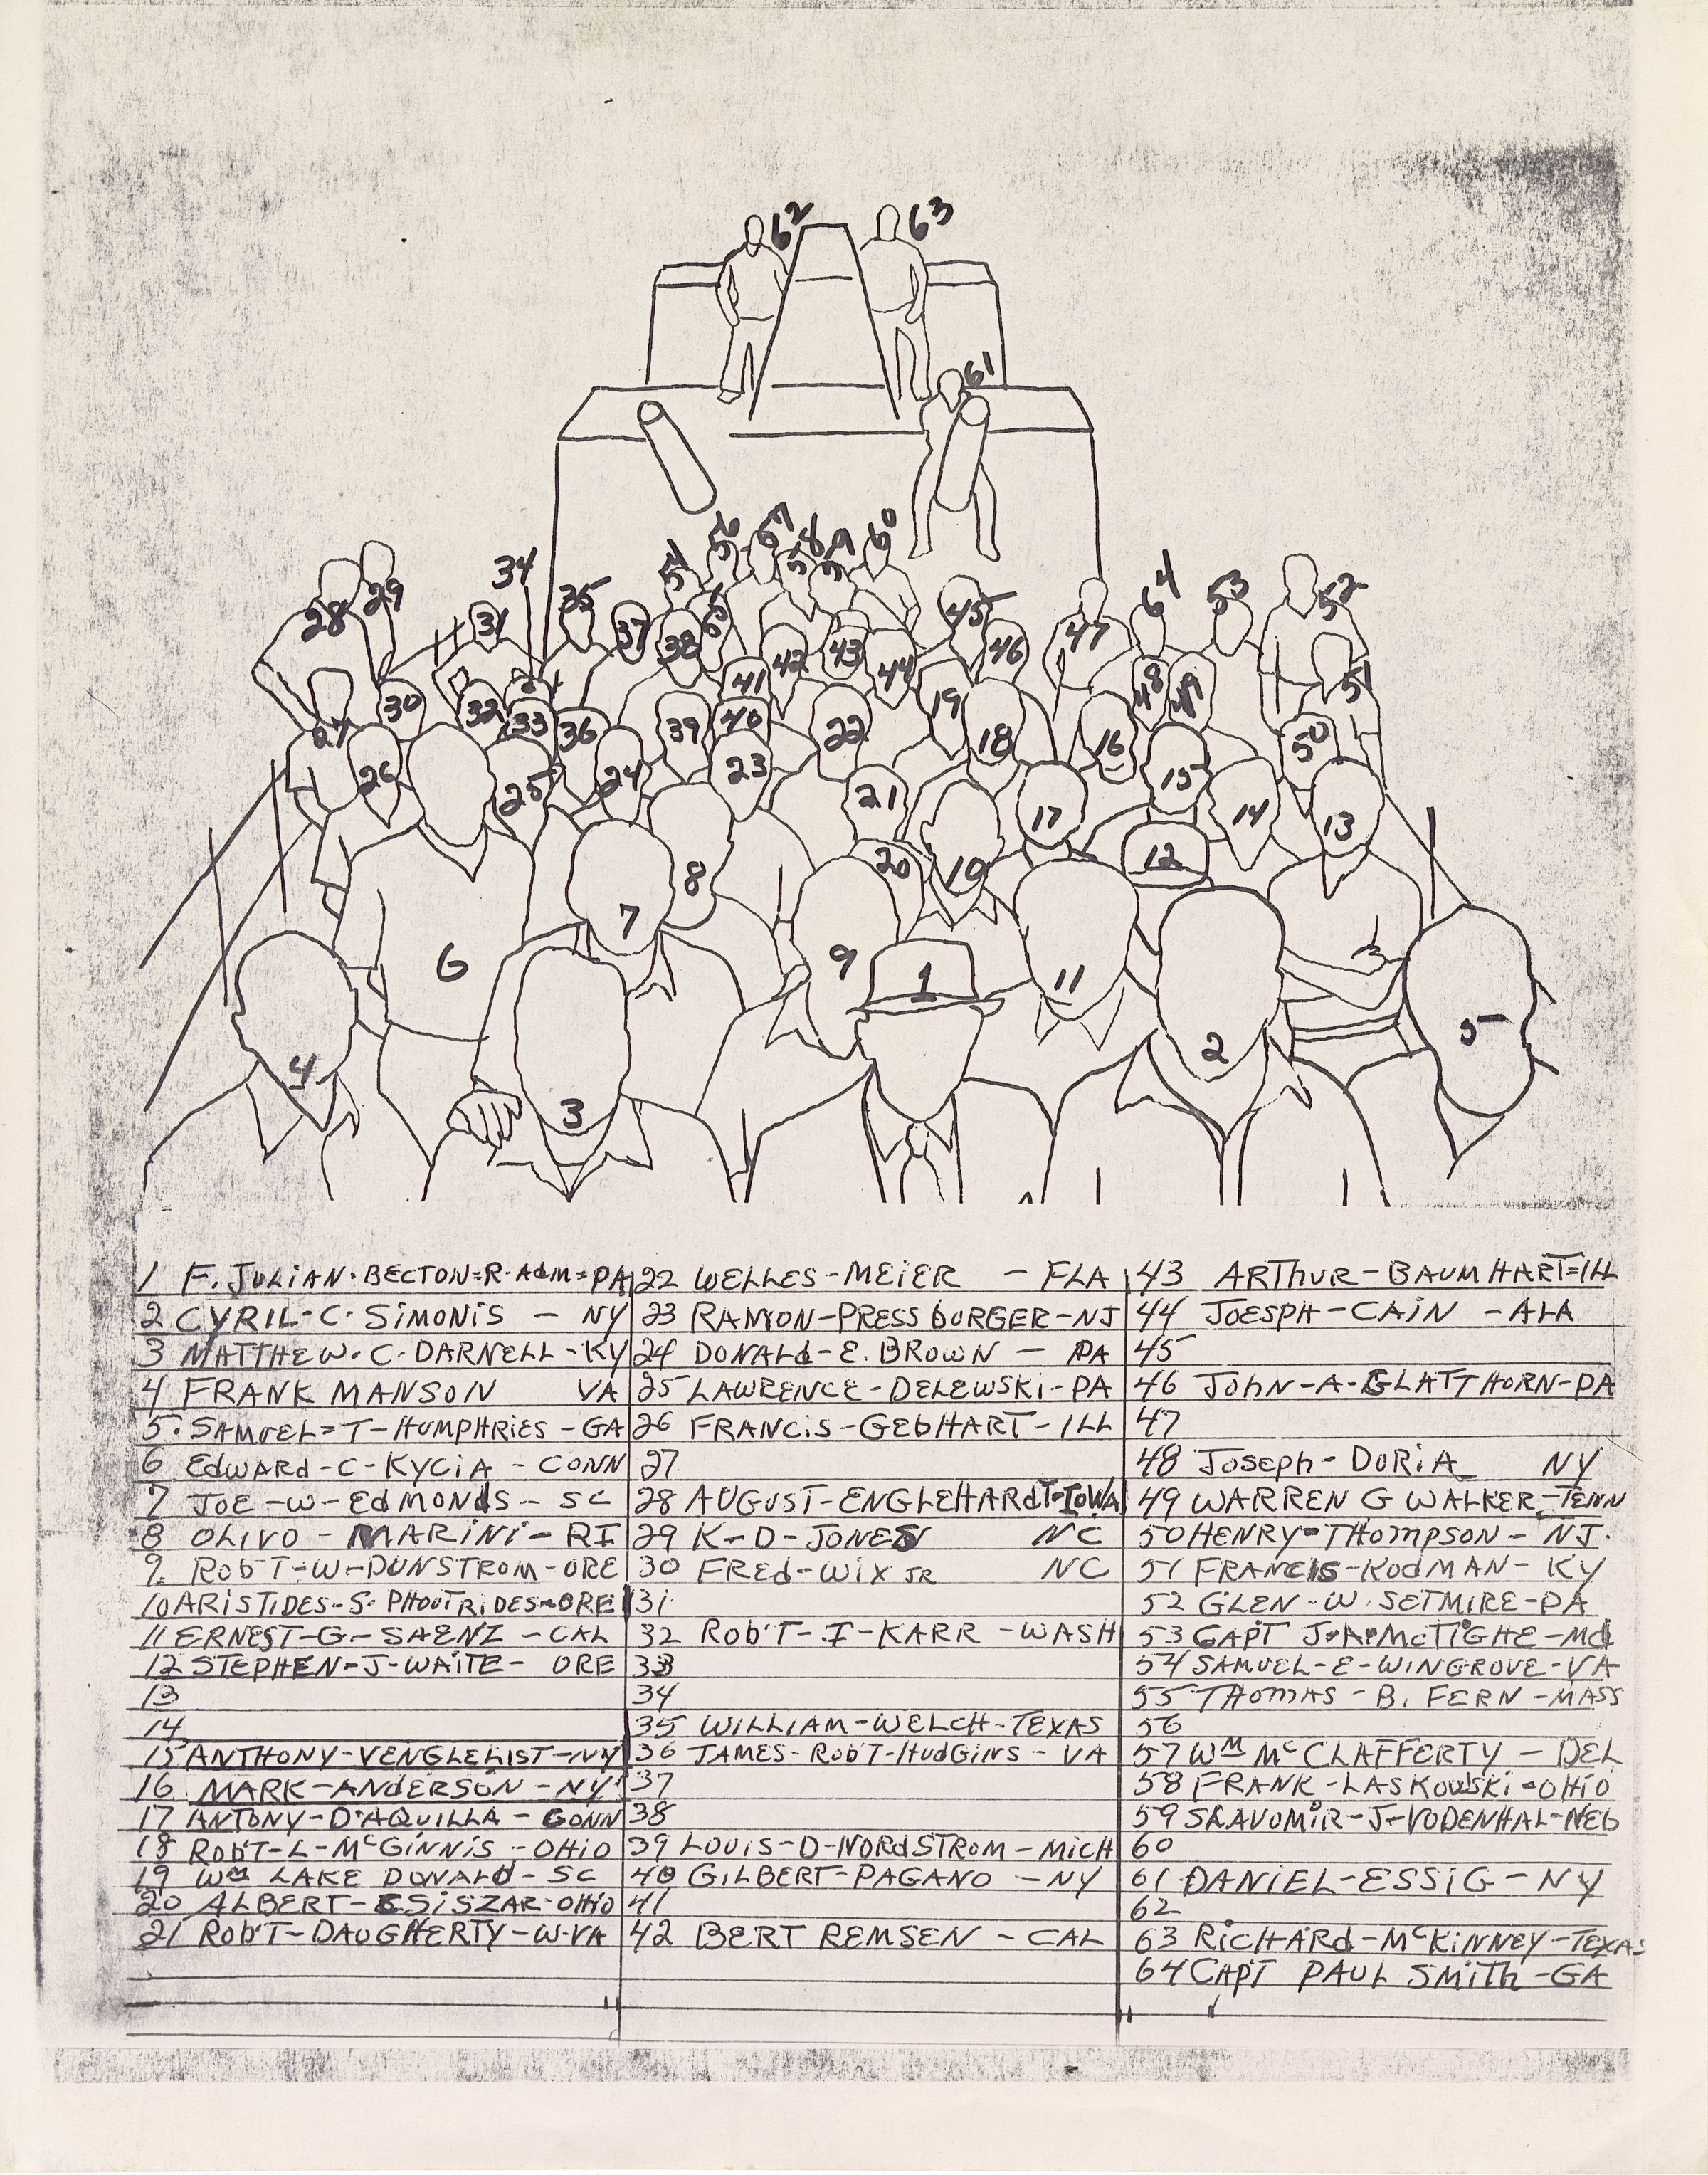 62 63
61
56 57 58 59 60
54 55
34 35 64 53 52
28 29 31 37 38 45 46 47
42 43 44 48 49 51
27 30 32 33 36 41 40 39 22 19 18 16 50
26 25 24 23 21 17 15 14 13
8 20 10 12
7 6 9 1 11 5
4 3 2
1 F. JULIAN. BECTON=R-AdM=PA
2 CYRIL-C. SIMONIS - NY
3 MATTHEW. C. DARNELL-KY
4 FRANK MANSON VA
5. SAMUEL=T-HUMPHRIES-GA
6 EdWARd-C-KYCIA - CONN
7 JOE-W-EdMONdS-SC
8 OLIVO - MARINI-RI
9. Rob'T-W-DUNSTROM-ORE
10 ARISTIDES-S. PHOUTRIDES-ORE
11 ERNEST-G-SAENZ-CAL
12 STEPHEN-J-WAITE- ORE
13
14
15 ANTHONY-VENGLEHIST-NY
16 MARK-ANdERSON-NY
17 ANTONY-D'AQUILLA-CONN
18 Rob'T-L-McGINNIS-OHIO
19 Wm LAKE DONALD-SC
20 ALBERT-CSISZAR-OHIO
21 Rob'T-DAUGHERTY-W-VA
22 WELLES-MEIER - FLA
23 RAMON-PRESSbURGER-NJ
24 DONALd-E. BROWN - PA
25 LAWRENCE-DELEWSKI-PA
26 FRANCIS-GEbHART-ILL
27
28 AUGUST-ENGLEHARdT-IOWA
29 K-D-JONES NC
30 FREd-WIX JR NC
31
32 Rob'T-I-KARR-WASH
33
34
35 WILLIAM-WELCH-TEXAS
36 JAMES-Rob'T-HUdGINS-VA
37
38
39 LOUIS-D-NORdSTROM-MICH
40 GILBERT-PAGANO-NY
41
42 BERT REMSEN - CAL
43 ARTHUR-BAUMHART=ILL
44 JOESPH-CAIN - ALA
45
46 JohN-A-GLATTHORN-PA
47
48 JOSEPh-DORIA NY
49 WARREN G WALKER-TENN
50 HENRY-THOMPSON-NJ.
51 FRANCIS-KOdMAN-KY
52 GLEN-W. SETMIRE-PA
53 CAPT J.A.McTIGHE-Md
54 SAMUEL-E-WINGROVE-VA
55 THOMAS-B. FERN-MASS
56
57 Wm McCLAFFERTY-DEL
58 FRANK-LASKOWSKI-OHIO
59 SLAVOMIR-J-VODENHAL-NEb
60
61 DANIEL-ESSIG-NY
62
63 RICHARd-McKINNEY-TEXAS
64 CAPT PAUL SMITH-GA